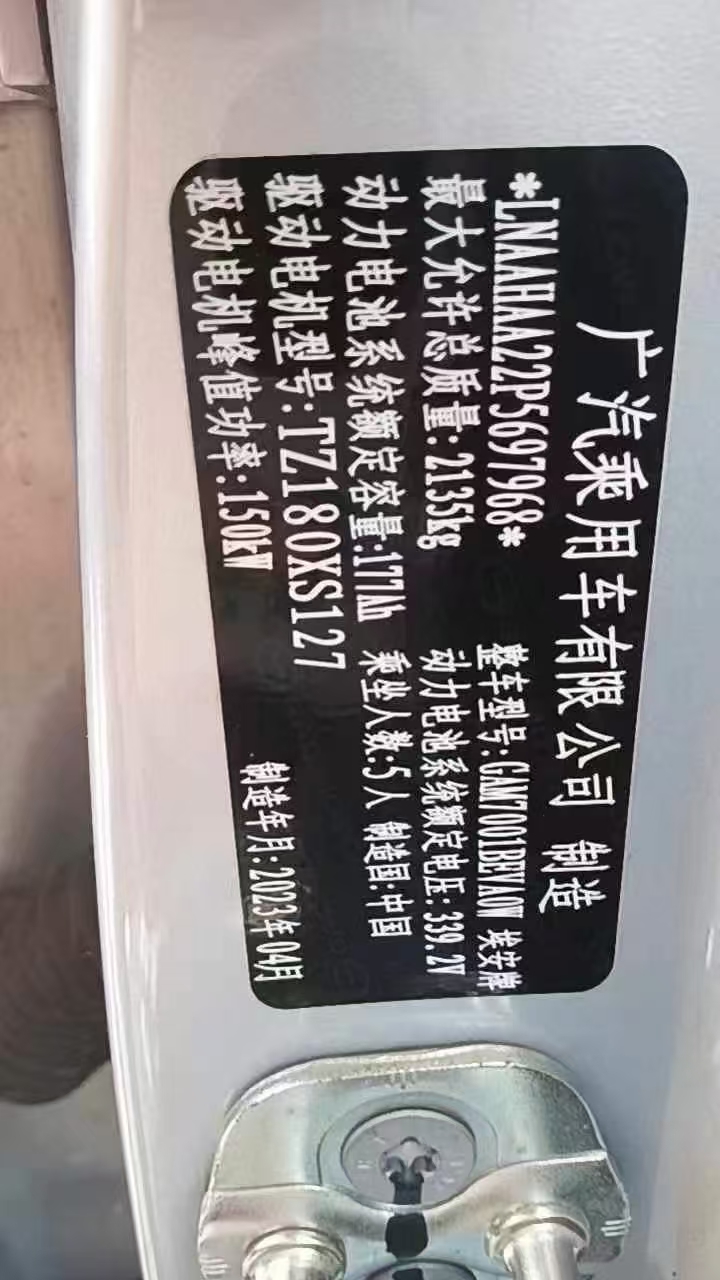 广汽乘用车有限公司 制造
*LNAAHAA22P5697968* 整车型号:GAM7001BEVA0W 埃安牌
最大允许总质量:2135kg 动力电池系统额定电压:339.2V
动力电池系统额定容量:177Ah 乘坐人数:5人 制造国:中国
驱动电机型号:TZ180XS127
驱动电机峰值功率:150kW 制造年月:2023年04月